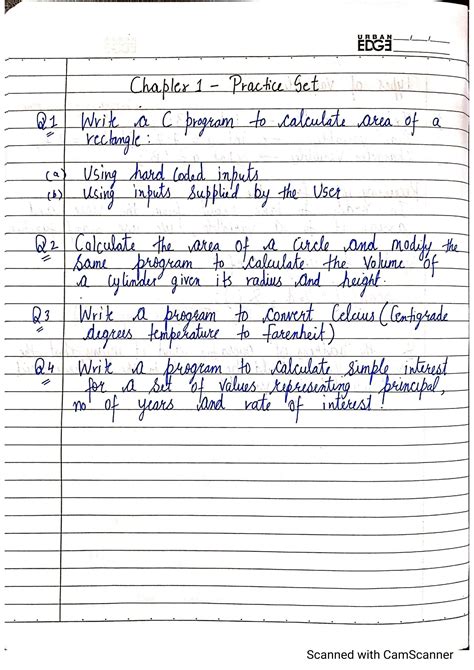 URBAN
EDGE
Chapter 1 - Practice Set
Q1 Write a C program to calculate area of a
rectangle :
(a) Using hard coded inputs
(b) Using inputs supplied by the User
Q2 Calculate the area of a circle and modify the
same program to calculate the volume of
a cylinder given its radius and height.
Q3 Write a program to convert Celcius (Centigrade
degrees temperature to farenheit)
Q4 Write a program to calculate simple interest
for a set of values representing principal,
no of years and rate of interest.
Scanned with CamScanner